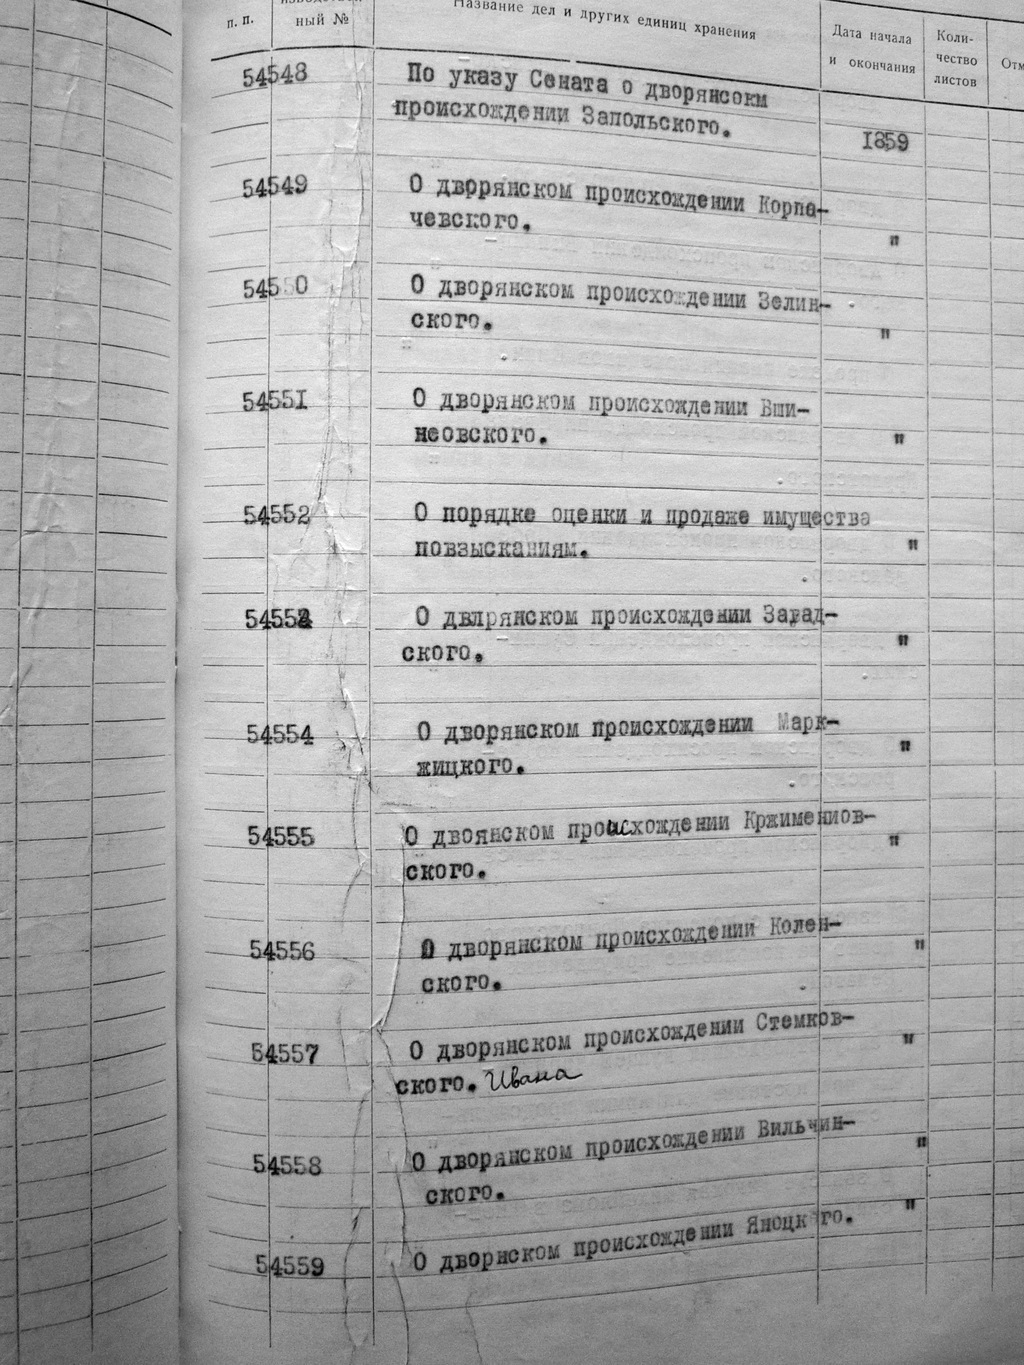 п. п.
ный №
Название дел и других единиц хранения
Дата начала
и окончания
Коли-
чество
листов
54548 По указу Сената о дворянсокм
происхождении Запольского.
1859
54549 О дворянском происхождении Корпа-
чевского. "
54550 О дворянском происхождении Зелин-
ского. "
54551 О дворянском происхождении Вши-
неовского. "
54552 О порядке оценки и продаже имущества
повзысканиям. "
О двлрянском происхождении
ского. "
54554 О дворянском происхождении Марк-
жицкого. "
54555 О двоянском происхождении Кржимениов-
ского. "
54556 О дворянском происхождении Колен-
ского. "
54557 О дворянском происхождении Стемков-
ского. Ивана "
54558 О дворянском происхождении Вильчин-
ского. "
54559 О дворнском происхождении "